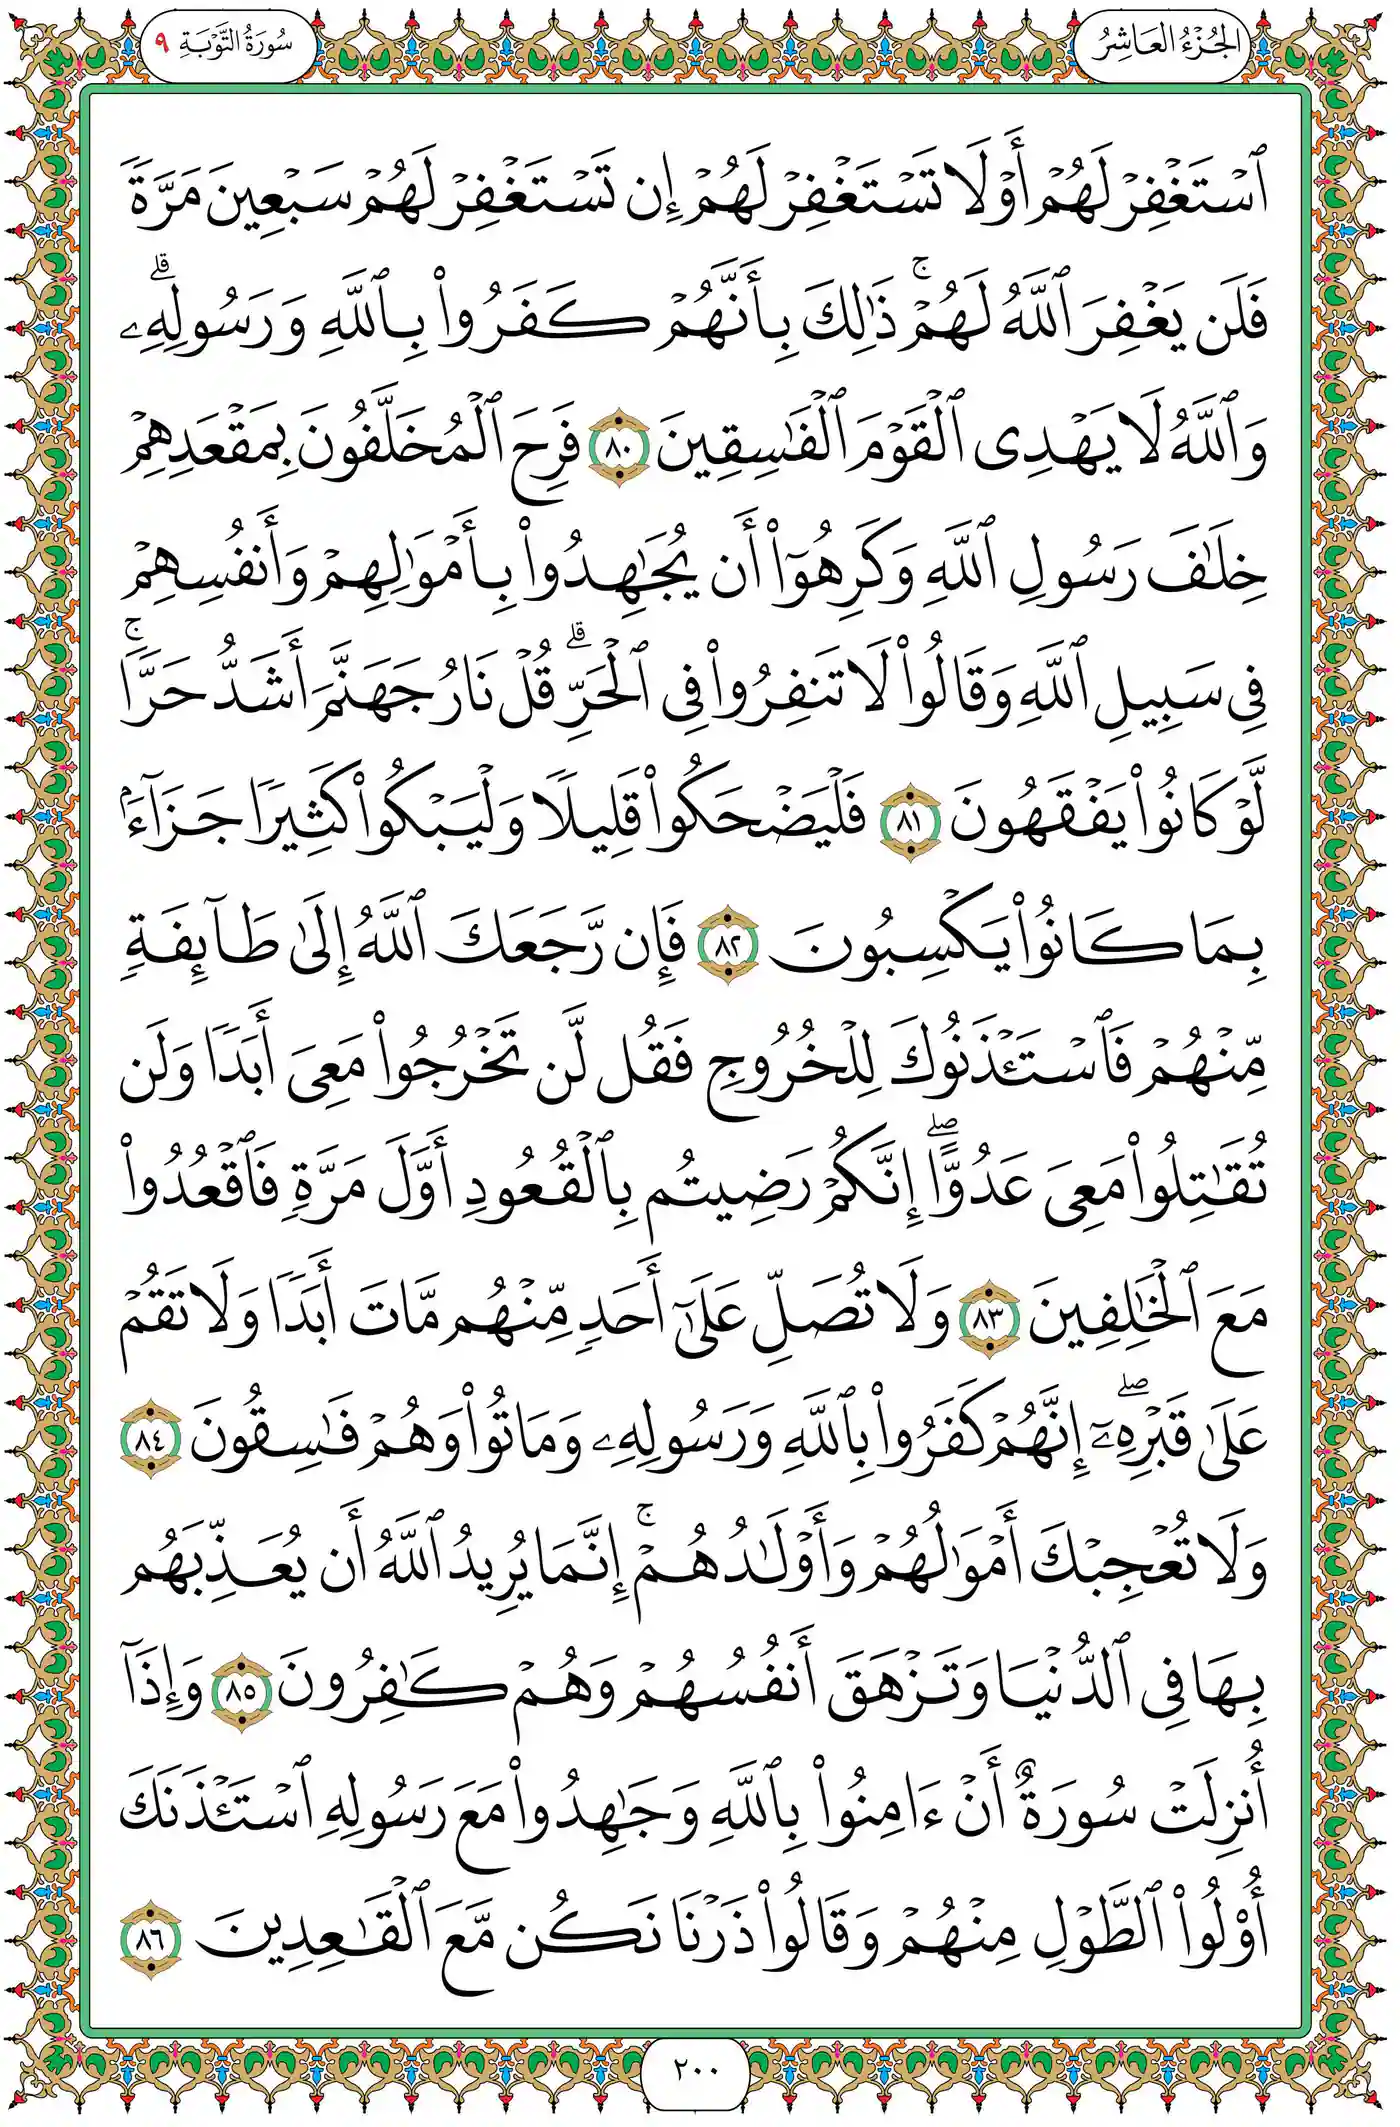 الجُزْءُ العَاشِرُ
سُورَةُ التَّوْبَةِ ٩
ٱسْتَغْفِرْ لَهُمْ أَوْ لَا تَسْتَغْفِرْ لَهُمْ إِن تَسْتَغْفِرْ لَهُمْ سَبْعِينَ مَرَّةً
فَلَن يَغْفِرَ ٱللَّهُ لَهُمْۚ ذَٰلِكَ بِأَنَّهُمْ كَفَرُوا۟ بِٱللَّهِ وَرَسُولِهِۦۗ
وَٱللَّهُ لَا يَهْدِى ٱلْقَوْمَ ٱلْفَٰسِقِينَ ٨٠ فَرِحَ ٱلْمُخَلَّفُونَ بِمَقْعَدِهِمْ
خِلَٰفَ رَسُولِ ٱللَّهِ وَكَرِهُوٓا۟ أَن يُجَٰهِدُوا۟ بِأَمْوَٰلِهِمْ وَأَنفُسِهِمْ
فِى سَبِيلِ ٱللَّهِ وَقَالُوا۟ لَا تَنفِرُوا۟ فِى ٱلْحَرِّۗ قُلْ نَارُ جَهَنَّمَ أَشَدُّ حَرًّاۚ
لَّوْ كَانُوا۟ يَفْقَهُونَ ٨١ فَلْيَضْحَكُوا۟ قَلِيلًا وَلْيَبْكُوا۟ كَثِيرًا جَزَآءًۢ
بِمَا كَانُوا۟ يَكْسِبُونَ ٨٢ فَإِن رَّجَعَكَ ٱللَّهُ إِلَىٰ طَآئِفَةٍ
مِّنْهُمْ فَٱسْتَـْٔذَنُوكَ لِلْخُرُوجِ فَقُل لَّن تَخْرُجُوا۟ مَعِىَ أَبَدًا وَلَن
تُقَٰتِلُوا۟ مَعِىَ عَدُوًّاۖ إِنَّكُمْ رَضِيتُم بِٱلْقُعُودِ أَوَّلَ مَرَّةٍ فَٱقْعُدُوا۟
مَعَ ٱلْخَٰلِفِينَ ٨٣ وَلَا تُصَلِّ عَلَىٰٓ أَحَدٍ مِّنْهُم مَّاتَ أَبَدًا وَلَا تَقُمْ
عَلَىٰ قَبْرِهِۦٓۖ إِنَّهُمْ كَفَرُوا۟ بِٱللَّهِ وَرَسُولِهِۦ وَمَاتُوا۟ وَهُمْ فَٰسِقُونَ ٨٤
وَلَا تُعْجِبْكَ أَمْوَٰلُهُمْ وَأَوْلَٰدُهُمْۚ إِنَّمَا يُرِيدُ ٱللَّهُ أَن يُعَذِّبَهُم
بِهَا فِى ٱلدُّنْيَا وَتَزْهَقَ أَنفُسُهُمْ وَهُمْ كَٰفِرُونَ ٨٥ وَإِذَآ
أُنزِلَتْ سُورَةٌ أَنْ ءَامِنُوا۟ بِٱللَّهِ وَجَٰهِدُوا۟ مَعَ رَسُولِهِ ٱسْتَـْٔذَنَكَ
أُو۟لُوا۟ ٱلطَّوْلِ مِنْهُمْ وَقَالُوا۟ ذَرْنَا نَكُن مَّعَ ٱلْقَٰعِدِينَ ٨٦
٢٠٠